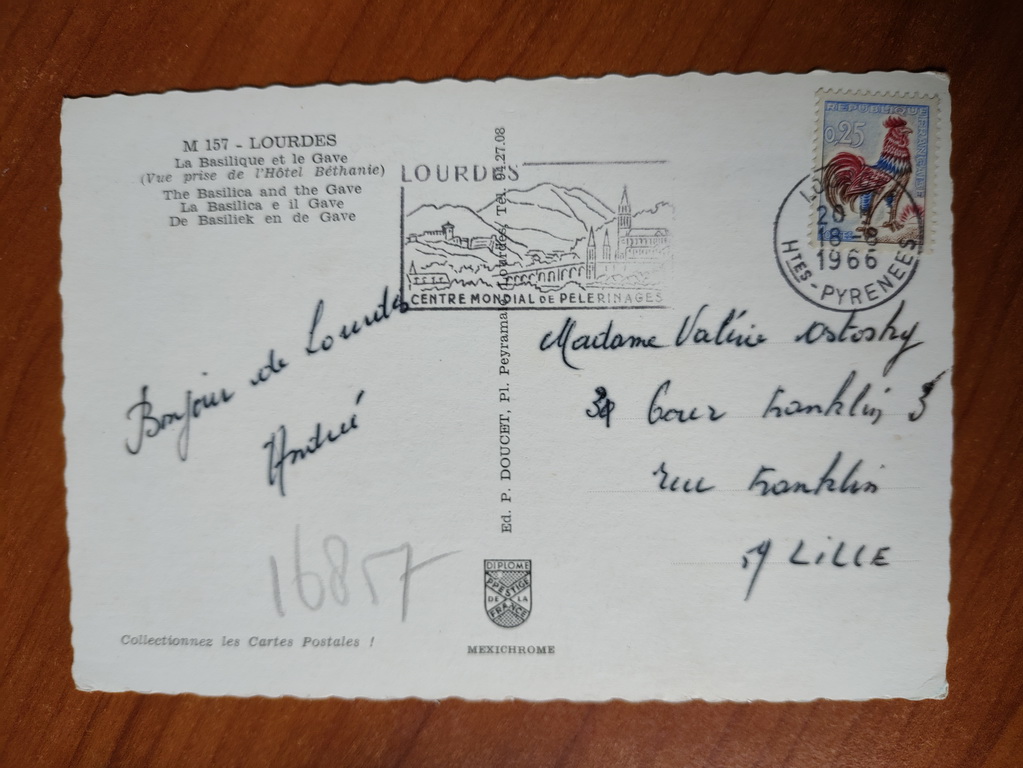 M 157 - LOURDES
La Basilique et le Gave
(Vue prise de l'Hôtel Béthanie)
The Basilica and the Gave
La Basilica e il Gave
De Basiliek en de Gave
LOURDES
CENTRE MONDIAL DE PELERINAGES
REPUBLIQUE
0,25
20
18-8
1966
Htes-PYRENEES
Bonjour de Lourdes
André
16857
Collectionnez les Cartes Postales !
Ed. P. DOUCET, Pl. Peyramale, Lourdes, Tél. 27.08
DIPLOME
PRESTIGE
DE LA
FRANCE
MEXICHROME
Madame Valérie Ostosky
Cour Franklin 3
rue Franklin
59 LILLE